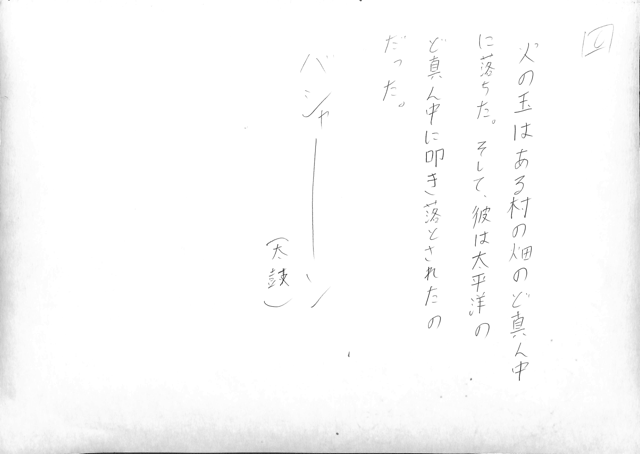 火の玉はある村の畑のど真ん中
に落ちた。そして、彼は太平洋の
ど真ん中に叩き落とされたの
だった。
バシャーーン
(太鼓)